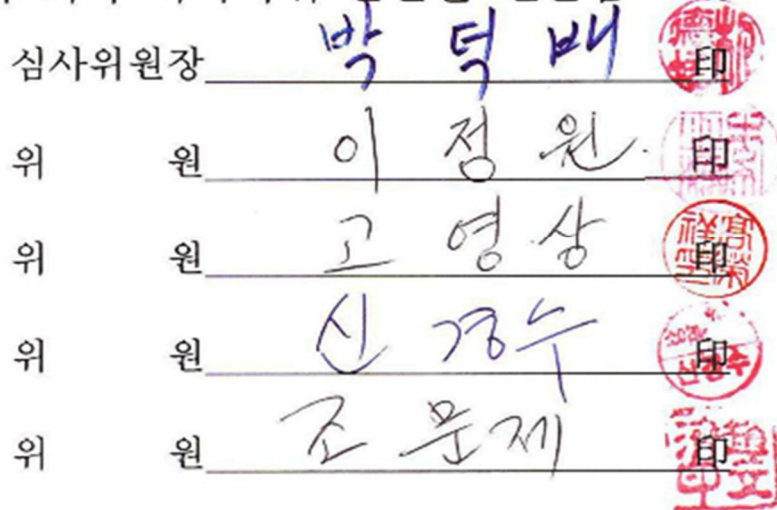 심사위원장 박덕배 印
위 원 이정원 印
위 원 고영상 印
위 원 신경수 印
위 원 조문제 印